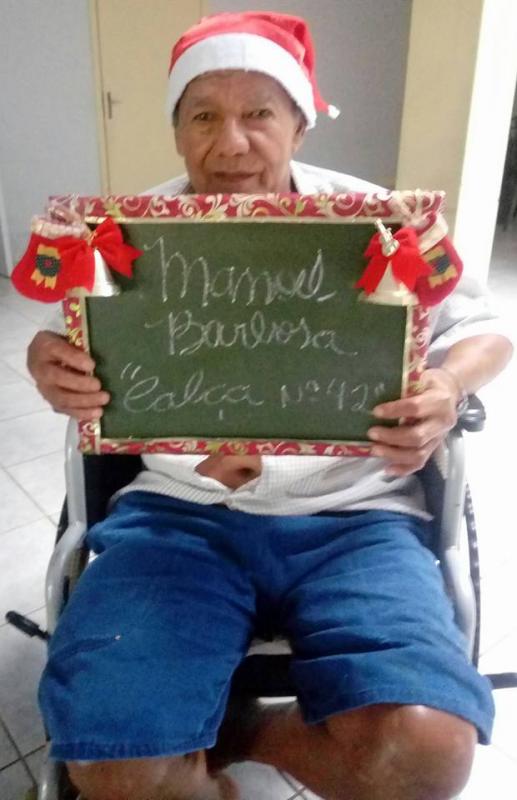 Manoel
Barbosa
"Calça Nº 42"